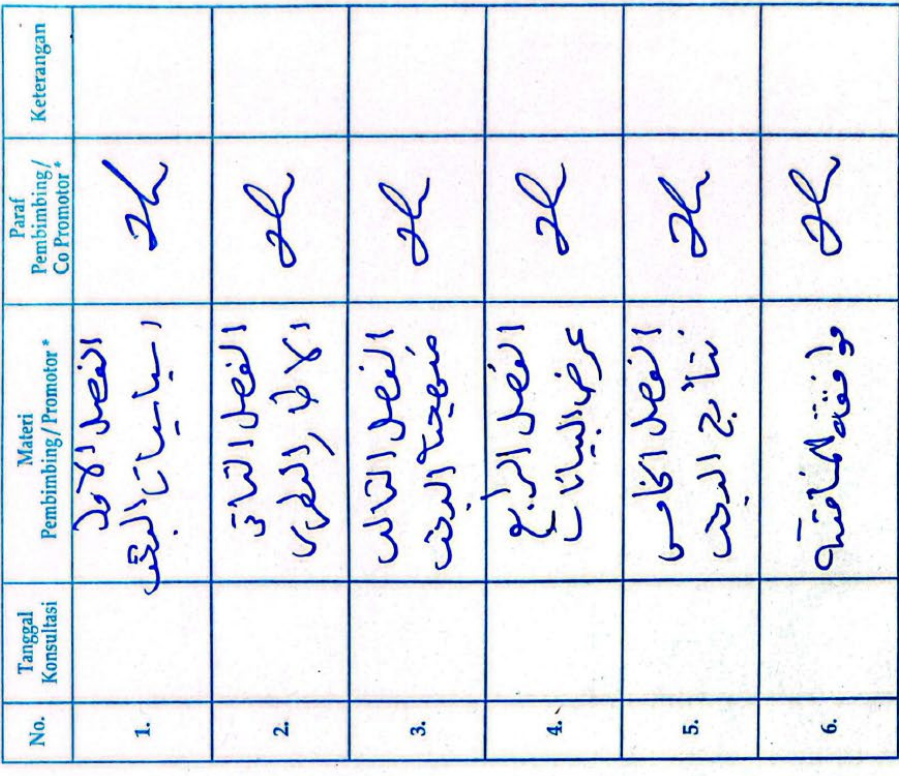 No.
Tanggal
Konsultasi
Materi
Pembimbing / Promotor *
Paraf
Pembimbing /
Co Promotor *
Keterangan
1.
الفصل الاول
اساسيات البحث
2.
الفصل الثانى
الاطار النظرى
3.
الفصل الثالث
منهجية البحث
4.
الفصل الرابع
عرض البيانات
5.
الفصل الخامس
نتائج البحث
6.
موافقة المناقشة